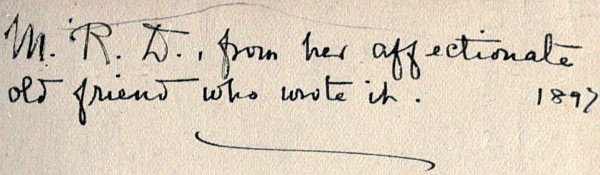 M. R. D., from her affectionate
old friend who wrote it. 1897